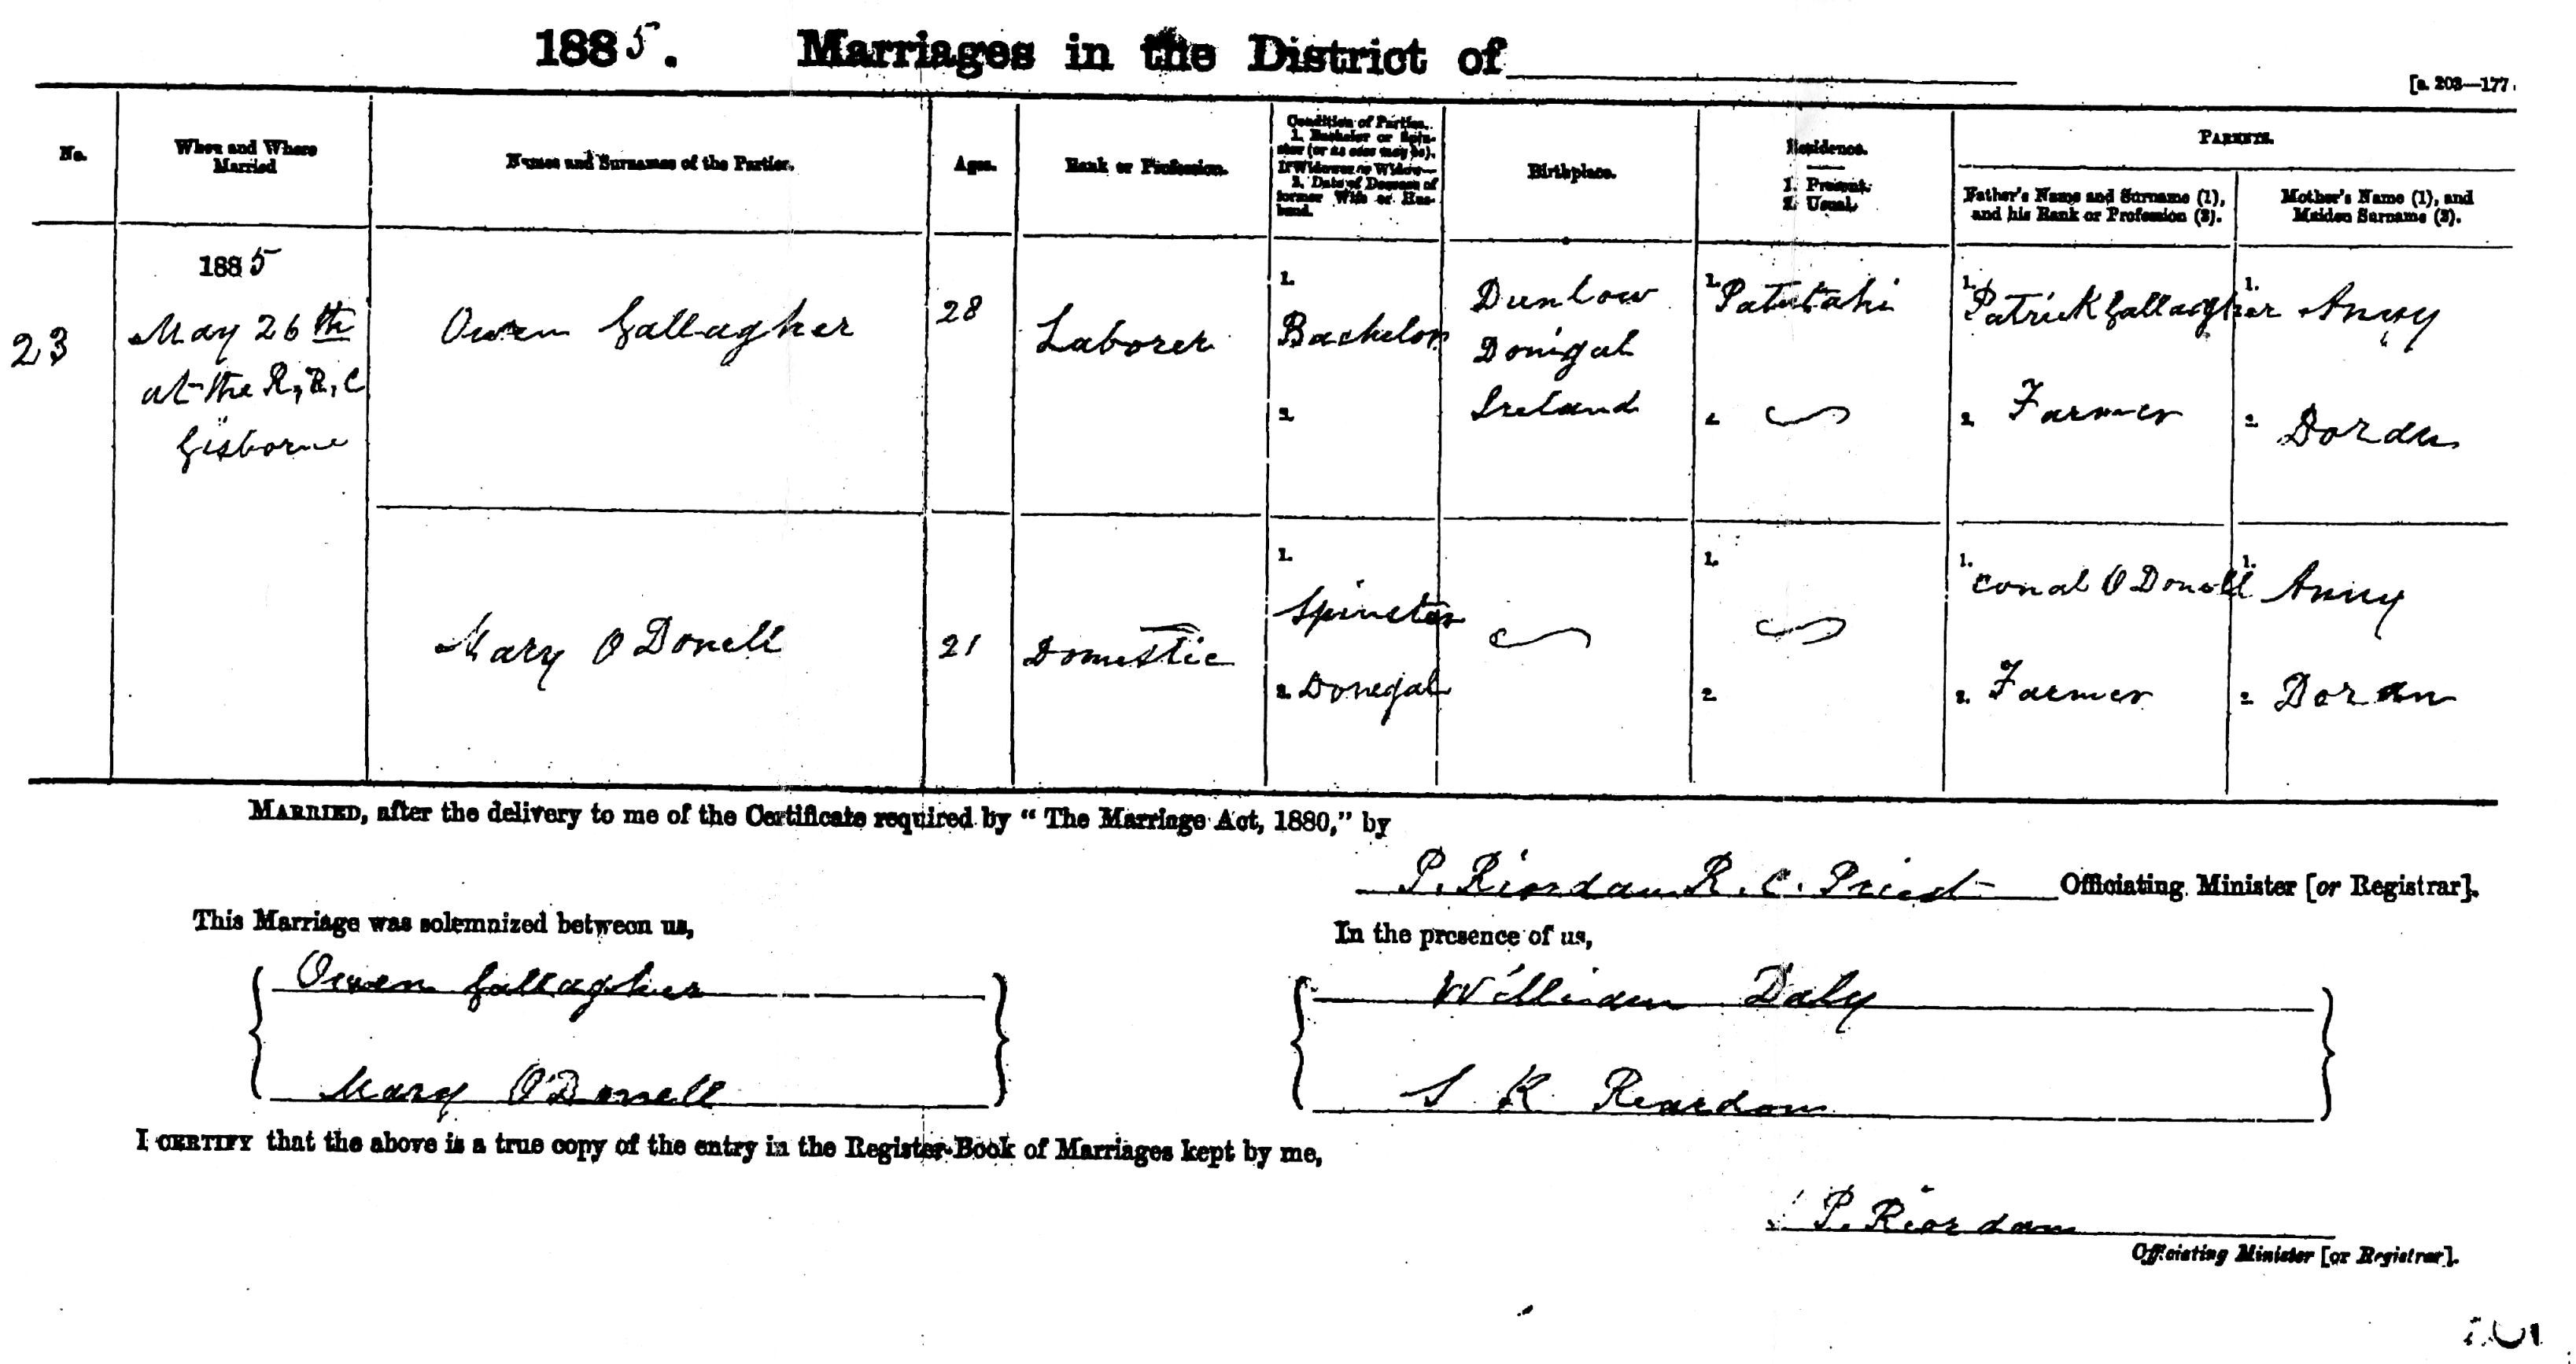 1885. Marriages in the District of
[a. 203—177.
No.
When and Where
Married
Names and Surnames of the Parties.
Ages.
Rank or Profession.
Condition of Parties.
1. Bachelor or Spin-
ster (or as case may be).
If Widower or Widow—
2. Date of Decease of
former Wife or Hus-
band.
Birthplace.
Residence.
1. Present.
2. Usual.
PARENTS.
Father's Name and Surname (1),
and his Rank or Profession (2).
Mother's Name (1), and
Maiden Surname (2).
23
1885
May 26th
at the R, R, C
Gisborne
Owen Gallagher
28
Laborer
1.
Bachelor
2.
Dunlow
Donigal
Ireland
1. Patutahi
2.
1. Patrick Gallagher
2. Farmer
1. Anny
2. Doran
Mary O Donell
21
Domestic
1.
Spinster
2. Donegal
1.
2.
1. Conal O Donell
2. Farmer
1. Anny
2. Doran
MARRIED, after the delivery to me of the Certificate required by "The Marriage Act, 1880," by
P. Riordan R. C. Priest Officiating Minister [or Registrar].
This Marriage was solemnized between us,
Owen Gallagher
Mary O'Donell
In the presence of us,
William Daly
S K Reardon
I CERTIFY that the above is a true copy of the entry in the Register-Book of Marriages kept by me,
P. Riordan
Officiating Minister [or Registrar].